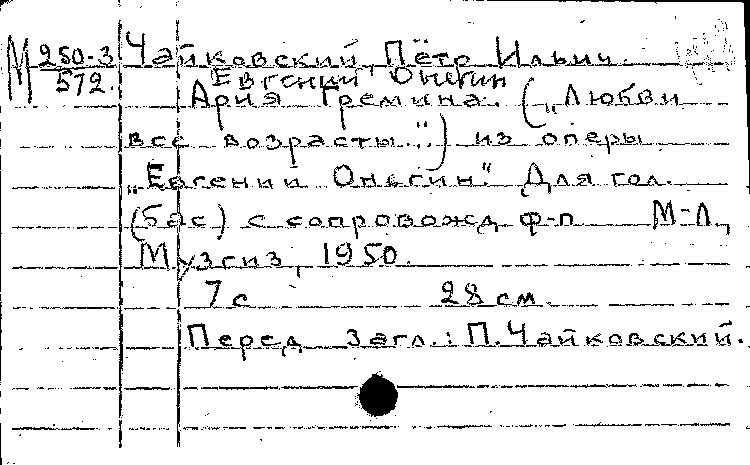 М 250-3 Чайковский, Пётр Ильич.
572. Евгений Онегин
Ария Гремина. („Любви
все возрасты...") из оперы
„Евгений Онегин." Для гол.
(бас) с сопровожд ф-п М-Л.,
Музгиз, 1950.
7 с 28 см.
Перед загл.: П. Чайковский.